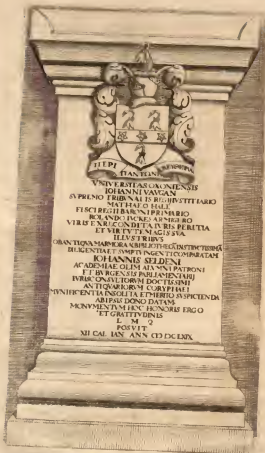 ΠΕΡΙ
VNIVERSITAS OXONIENSIS
IOHANNI VAVGAN
SVPREMO TRIBVNALIS REGII IVSTITIARIO
MATTHAEO HALE
FISCI REGII BARONI PRIMARIO
ROLANDO IVCKES ARMIGERO
VIRIS EX RECONDITA IVRIS PERITIA
ET VIRTVTE MAGIS SVA
ILLVSTRIBVS
OB ANTIQVA MARMORA ET BIBLIOTHECA INSTRVCTISSIMA
DILIGENTIA ET SVMPTV INGENTI COMPARATAM
IOHANNIS SELDENI
ACADEMIAE OLIM ALVMNI PATRONI
ET BVRGENSIS PARLIAMENTARII
IVRISCONSVLTORVM DOCTISSIMI
ANTIQVARIORVM CORYPHAEI
MVNIFICENTIA INSOLITA ET MERITO SVSPICIENDA
AB IPSIS DONO DATAM
MONVMENTVM HOC HONORIS ERGO
ET GRATITVDINIS
L M
POSVIT
XII CAL IAN ANN